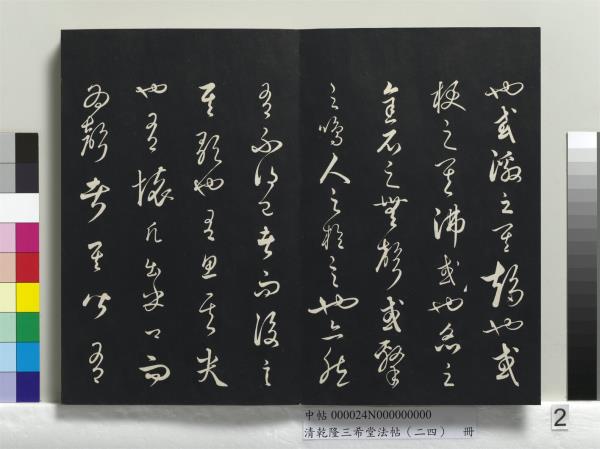 也或激之其趨也或
梗之其沸或也炙之
金石之無聲或擊
之鳴人之於言也亦然
有不得已者而後言
其歌也有思其哭
也有懷凡出乎口而
為聲者其皆有
中帖 000024N000000000
清乾隆三希堂法帖（二四） 冊
2